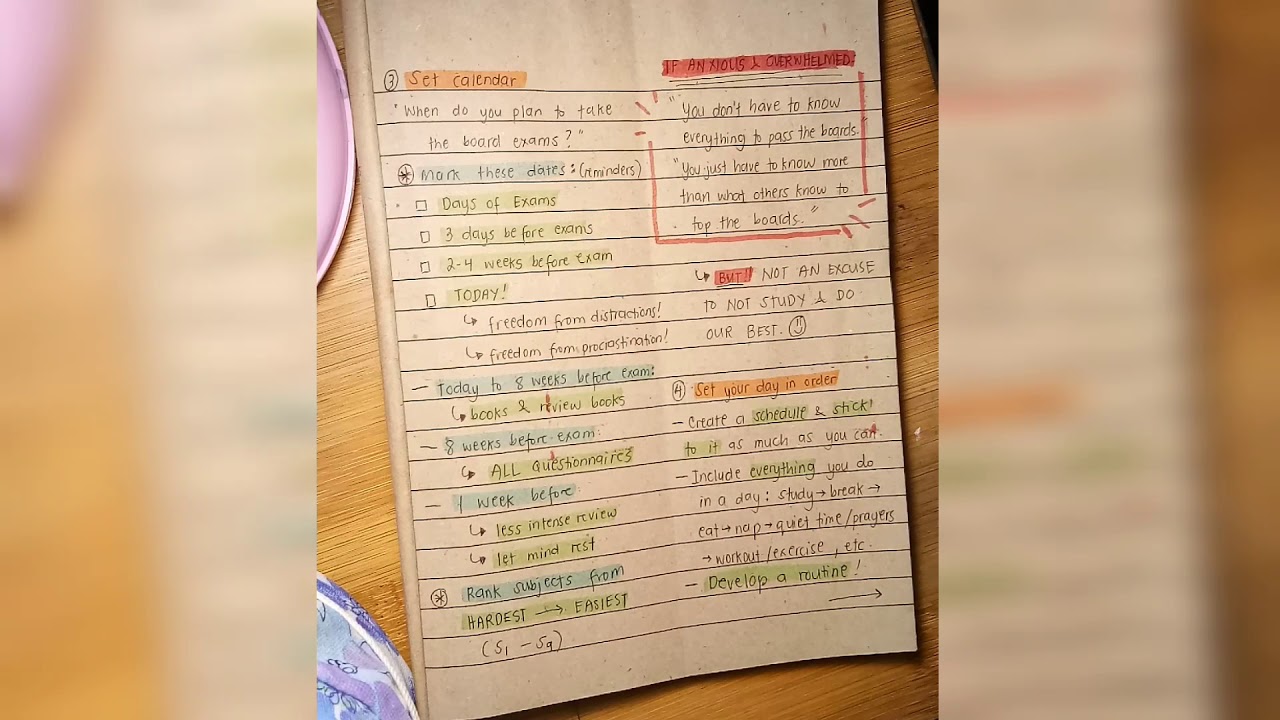 ③ Set calendar
"When do you plan to take
the board exams?"
✱ Mark these dates: (reminders)
☐ Days of Exams
☐ 3 days before exams
☐ 2-4 weeks before exam
☐ TODAY!
↳ freedom from distractions!
↳ freedom from procrastination!
— Today to 8 weeks before exam:
↳ books & review books
— 8 weeks before exam:
↳ ALL questionnaires
— 1 week before
↳ less intense review
↳ let mind rest
✱ Rank subjects from
HARDEST → EASIEST
(S1 – S9)
IF ANXIOUS & OVERWHELMED:
"You don't have to know
everything to pass the boards."
"You just have to know more
than what others know to
top the boards."
↳ BUT!! NOT AN EXCUSE
TO NOT STUDY & DO
OUR BEST. ☺
④ Set your day in order
– Create a schedule & stick!
to it as much as you can.
– Include everything you do
in a day: study → break →
eat → nap → quiet time/prayers
→ workout/exercise, etc.
– Develop a routine!
→